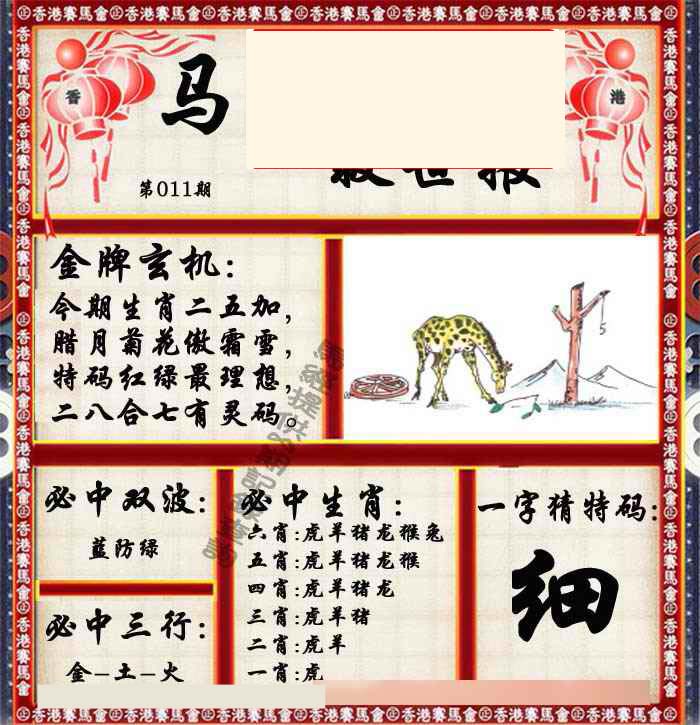 香港賽馬會
香
港
马
第011期
金牌玄机:
今期生肖二五加,
腊月菊花傲霜雪,
特码红绿最理想,
二八合七有灵码。
5
必中双波:
蓝防绿
必中三行:
金-土-火
必中生肖:
六肖:虎羊猪龙猴兔
五肖:虎羊猪龙猴
四肖:虎羊猪龙
三肖:虎羊猪
二肖:虎羊
一肖:虎
一字猜特码:
细